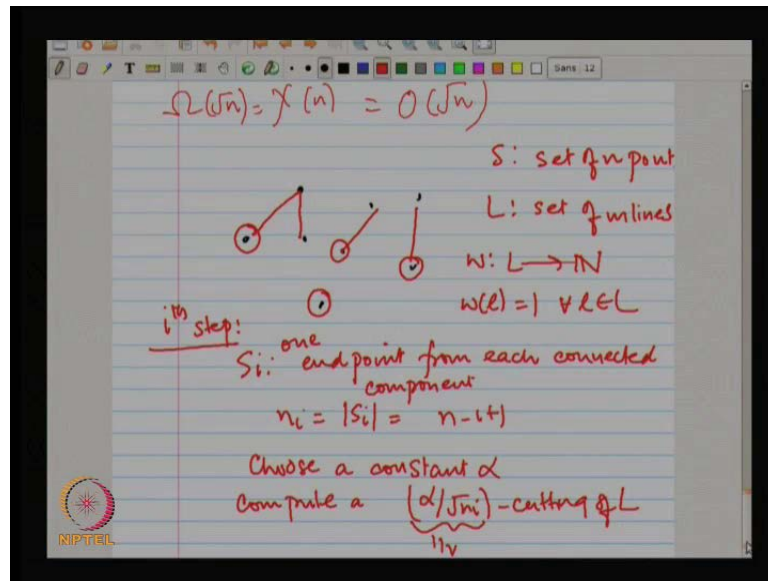 Sans 12
Ω(√n) = χ(n) = O(√n)
S: set of n pont
L: set of m lines
w: L → IN
w(l) = 1 ∀ l ∈ L
ith step:
Si: one endpoint from each connected
component
ni = |Si| = n-i+1
Choose a constant α
compute a (α/√ni)-cutting of L
1/r
NPTEL